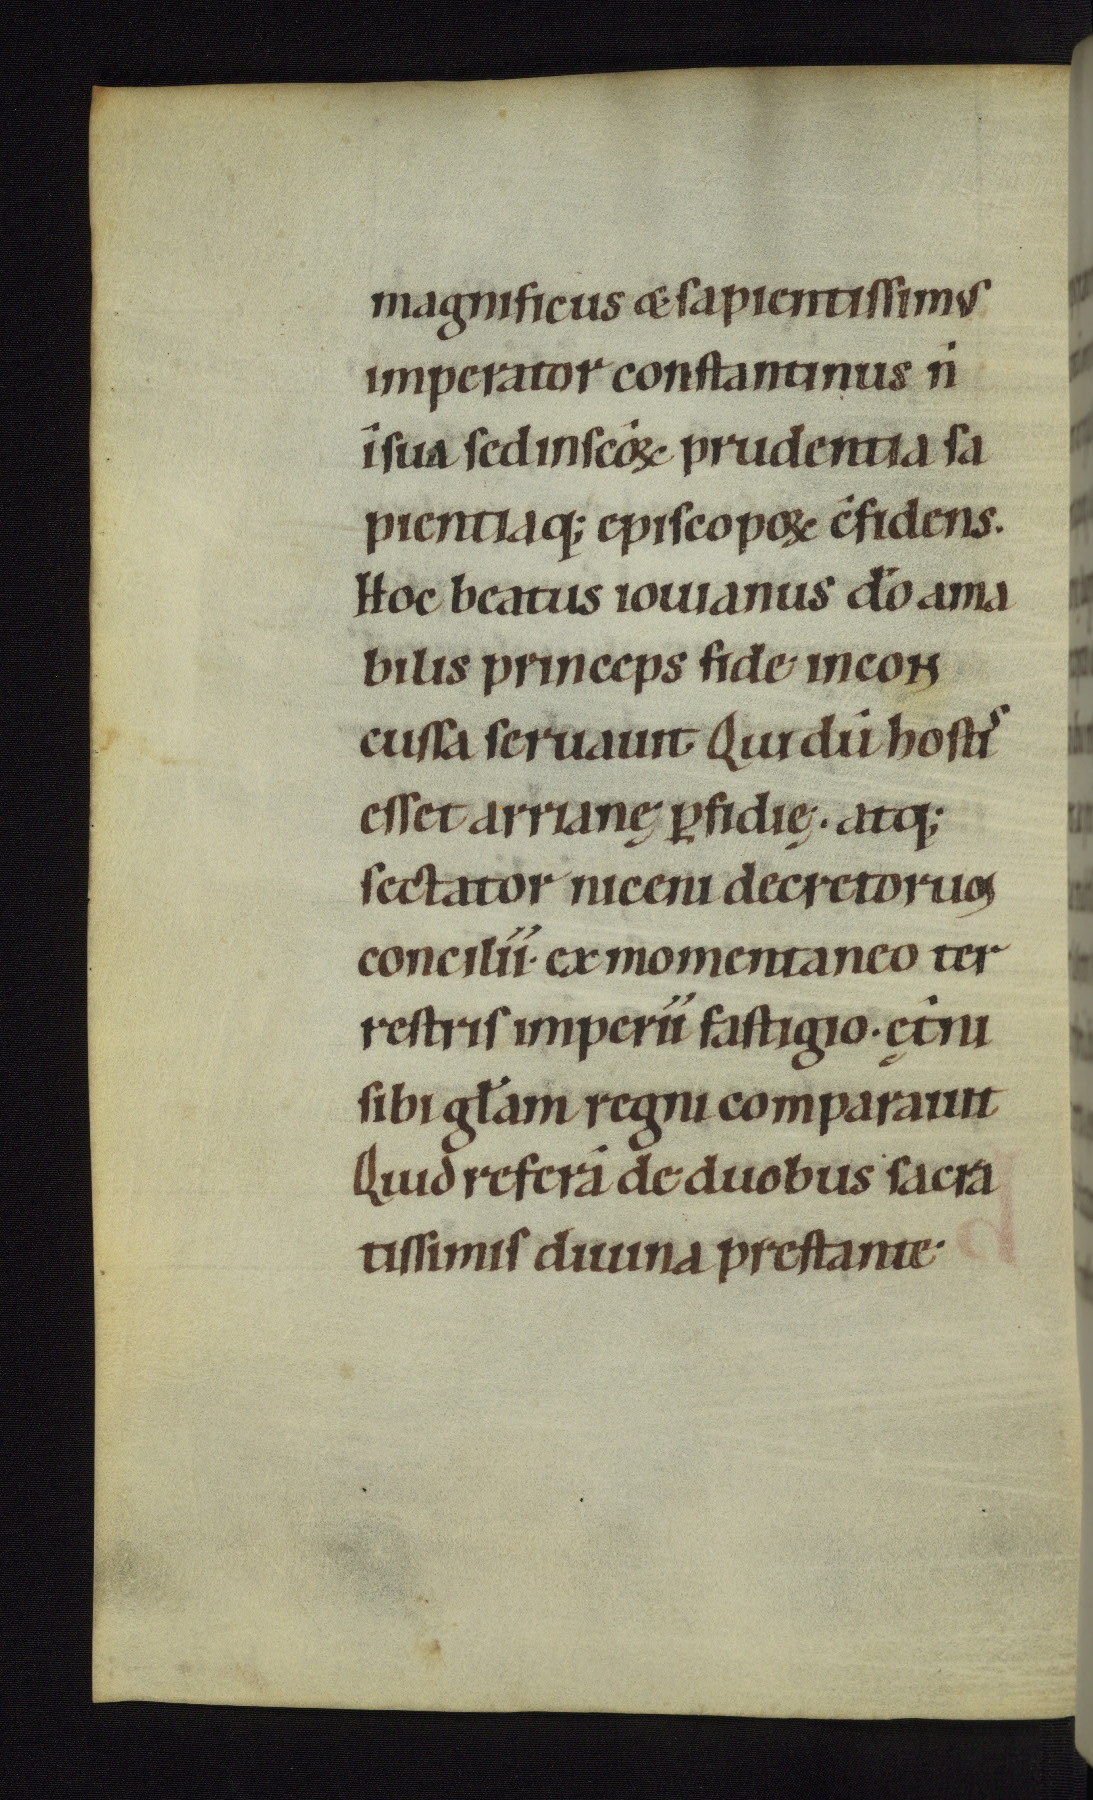 magnificus & sapientissimus
imperator constantinus n̄
ī sua sed in sc̄oꝝ prudentia sa
pientiaq; episcopoꝝ c̄fidens.
Hoc beatus iouianus dō ama
bilis princeps fide incon
cussa seruauit Qui dū hostis
esset arrianę ꝑfidię. atq;
sectator niceni decretorum
concilii. ex momentaneo ter
restris imperii fastigio. ęt̄ni
sibi gl̄am regni comparauit
Quid referā de duobus sacra
tissimis diuina prestante.